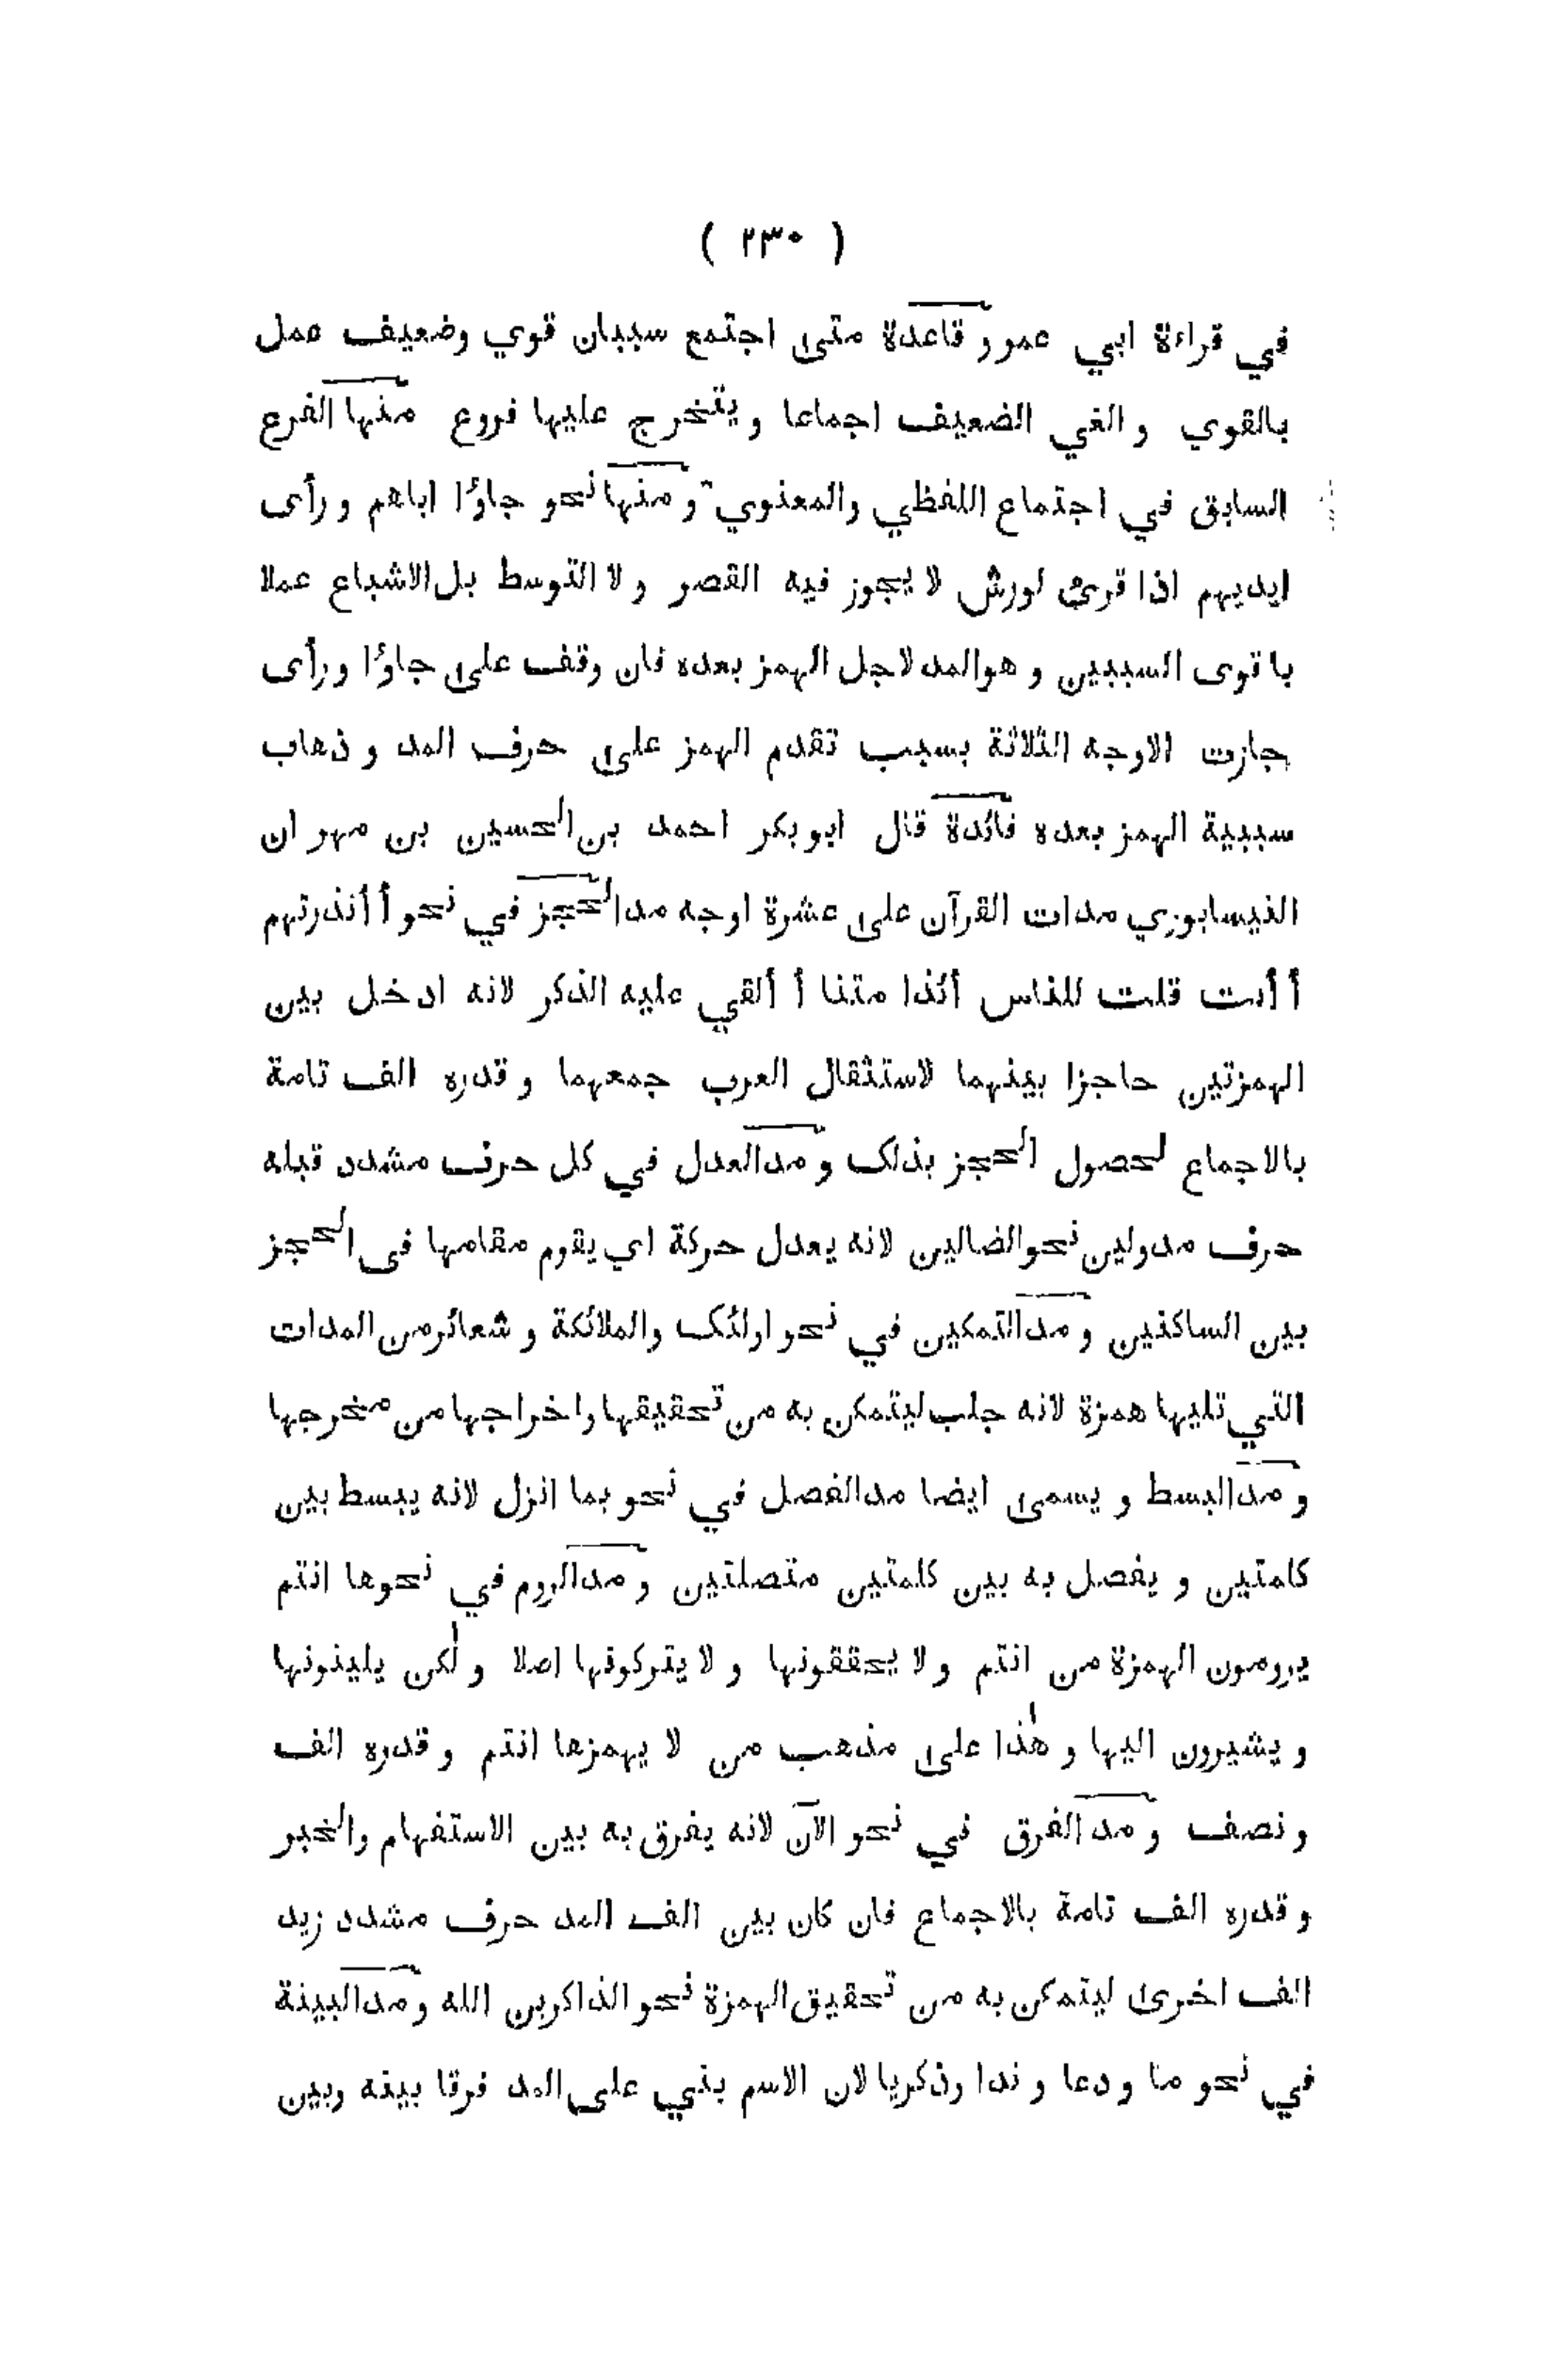 ( ٢٣٠ )
في قراءة ابي عمرو قاعدة متى اجتمع سببان قوي وضعيف عمل
بالقوي والغي الضعيف اجماعا ويتخرج عليها فروع منها الفرع
السابق في اجتماع اللفظي والمعنوي ومنها نحو جاوُا اباهم ورأى
ايديهم اذا قرئ لورش لا يجوز فيه القصر ولا التوسط بل الاشباع عملا
باقوى السببين وهو المد لاجل الهمز بعده فان وقف على جاوُا ورأى
جازت الاوجه الثلاثة بسبب تقدم الهمز على حرف المد وذهاب
سببية الهمز بعده فائدة قال ابو بكر احمد بن الحسين بن مهران
النيسابوري مدات القرآن على عشرة اوجه مد الحجز في نحو أ أنذرتهم
أ أنت قلت للناس أئذا متنا أ ألقي عليه الذكر لانه ادخل بين
الهمزتين حاجزا بينهما لاستثقال العرب جمعهما وقدره الف تامة
بالاجماع لحصول الحجز بذلك ومد العدل في كل حرف مشدد قبله
حرف مد ولين نحو الضالين لانه يعدل حركة اي يقوم مقامها فى الحجز
بين الساكنين ومد التمكين في نحو اولئك والملائكة وشعائر من المدات
التي تليها همزة لانه جلب ليتمكن به من تحقيقها واخراجها من مخرجها
ومد البسط ويسمى ايضا مد الفصل في نحو بما انزل لانه يبسط بين
كلمتين ويفصل به بين كلمتين متصلتين ومد الروم في نحو ها انتم
يرومون الهمزة من انتم ولا يحققونها ولا يتركونها اصلا ولٰكن يلينونها
ويشيرون اليها وهٰذا على مذهب من لا يهمز ها انتم وقدره الف
ونصف ومد الفرق في نحو الآن لانه يفرق به بين الاستفهام والخبر
وقدره الف تامة بالاجماع فان كان بين الف المد حرف مشدد زيد
الف اخرى ليتمكن به من تحقيق الهمزة نحو الذاكرين الله ومد البينة
في نحو ما ودعا وندا وذكريا لان الاسم بني على المد فرقا بينه وبين